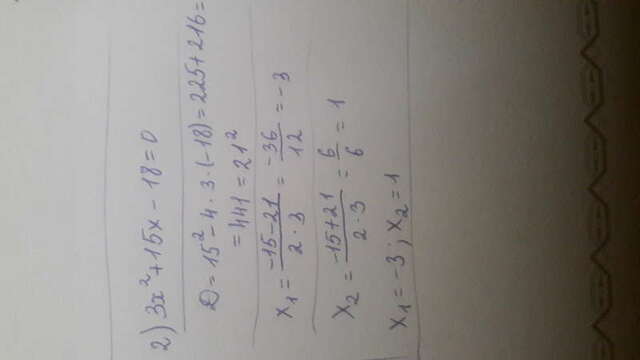 2) 3x²+15x-18=0
D=15²-4·3·(-18)=225+216=
=441=21²
x₁=(-15-21)/(2·3)=(-36)/12=-3
x₂=(-15+21)/(2·3)=6/6=1
x₁=-3; x₂=1